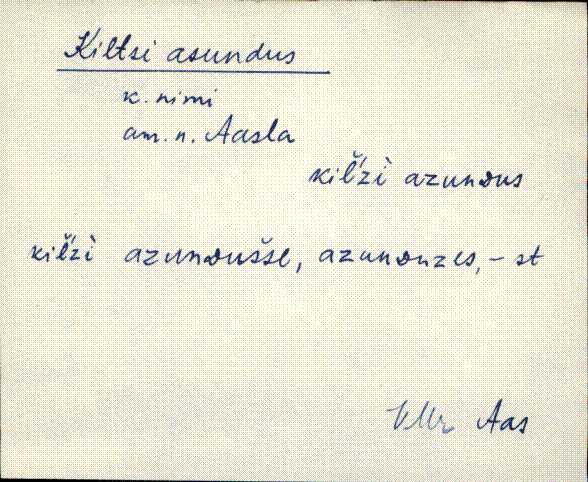 Kiltsi asundus
k. nimi
am. n. Aasla
kil̆'zì azundus
kil̆'zì azundušše, azunduzes, - st
VMr Aas